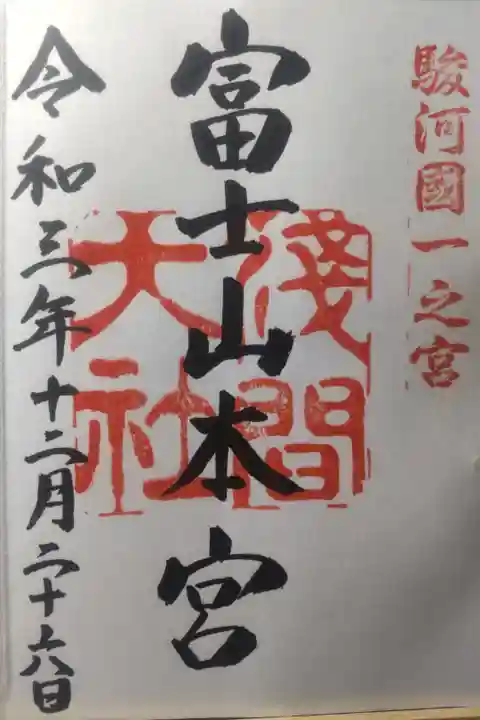 駿河國一之宮
富士山本宮
淺間
大社
令和三年十二月二十六日